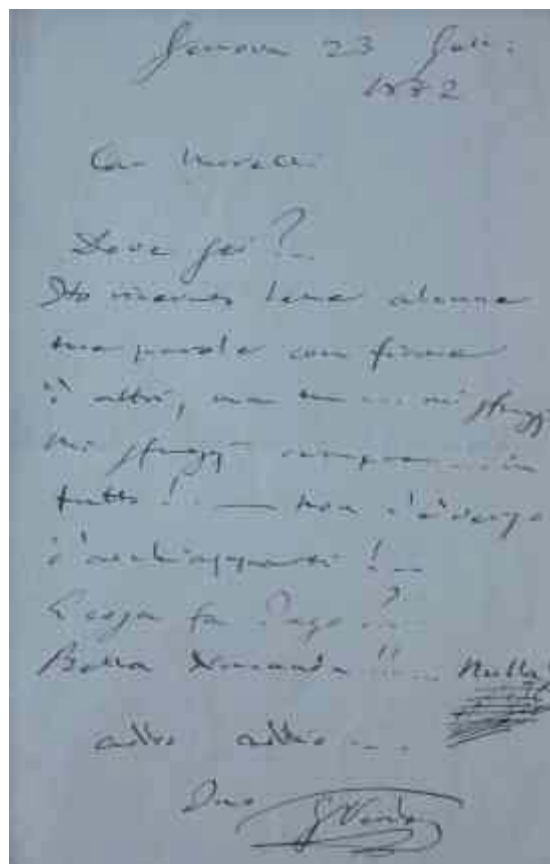 Genova 23
1882
Caro Morelli
Dove sei?
Ho ricevuto bene alcune
tue parole con firma
d'altri, ma tu .... mi sfuggi
Mi sfuggi sempre .... in
tutto! . — Non c'è verso
d'acchiapparti! —
E cosa fa Jago ...?
Bella domanda !!.... Nulla!
addio addio ...
Tuo GVerdi